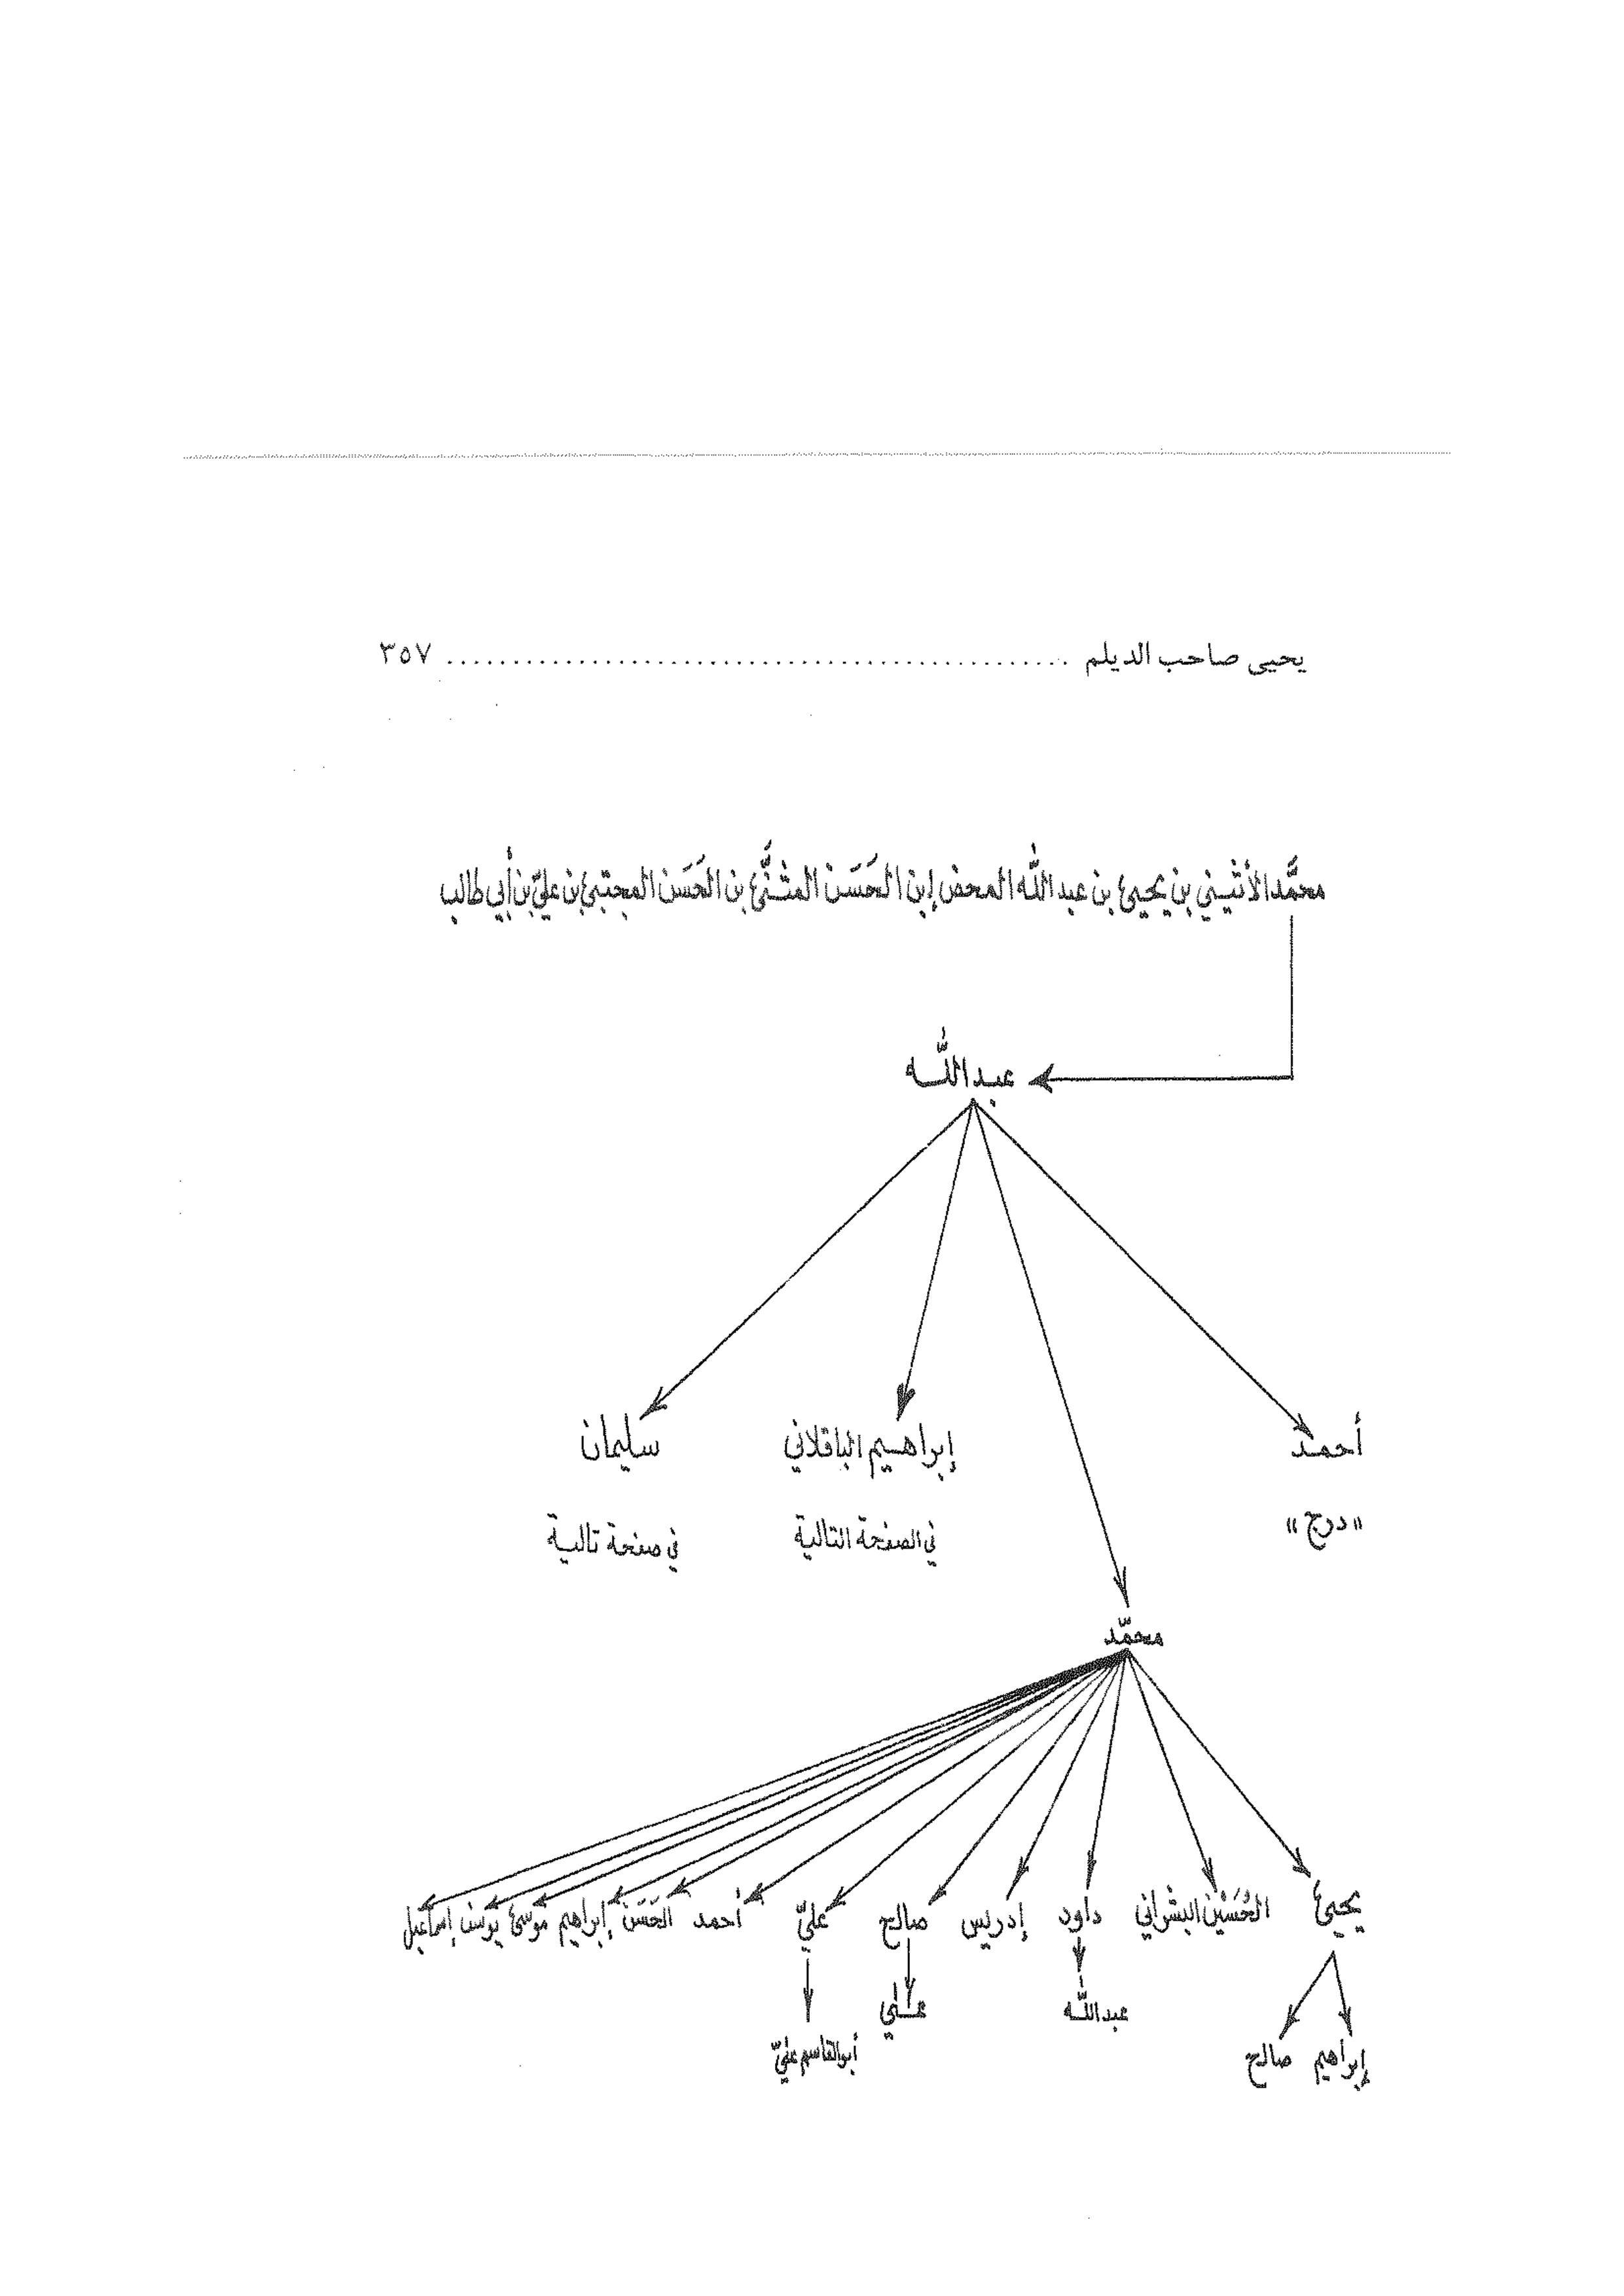 يحيى صاحب الديلم ................................................ ٣٥٧
محمَّد الأثيني بن يحيى بن عبد الله المحض إبن الحَسَن المثنَّى بن الحَسَن المجتبى بن عليّ بن أبي طالب
عبد الله
أحمد إبراهيم الباقلاني سليمان
«درج» في الصفحة التالية في صفحة تالية
محمّد
يحيى الحُسَيْن البشراني داود إدريس صالح عليّ أحمد الحَسَن إبراهيم موسى يوسف إسماعيل
عبد الله علي
إبراهيم صالح أبو القاسم عليّ